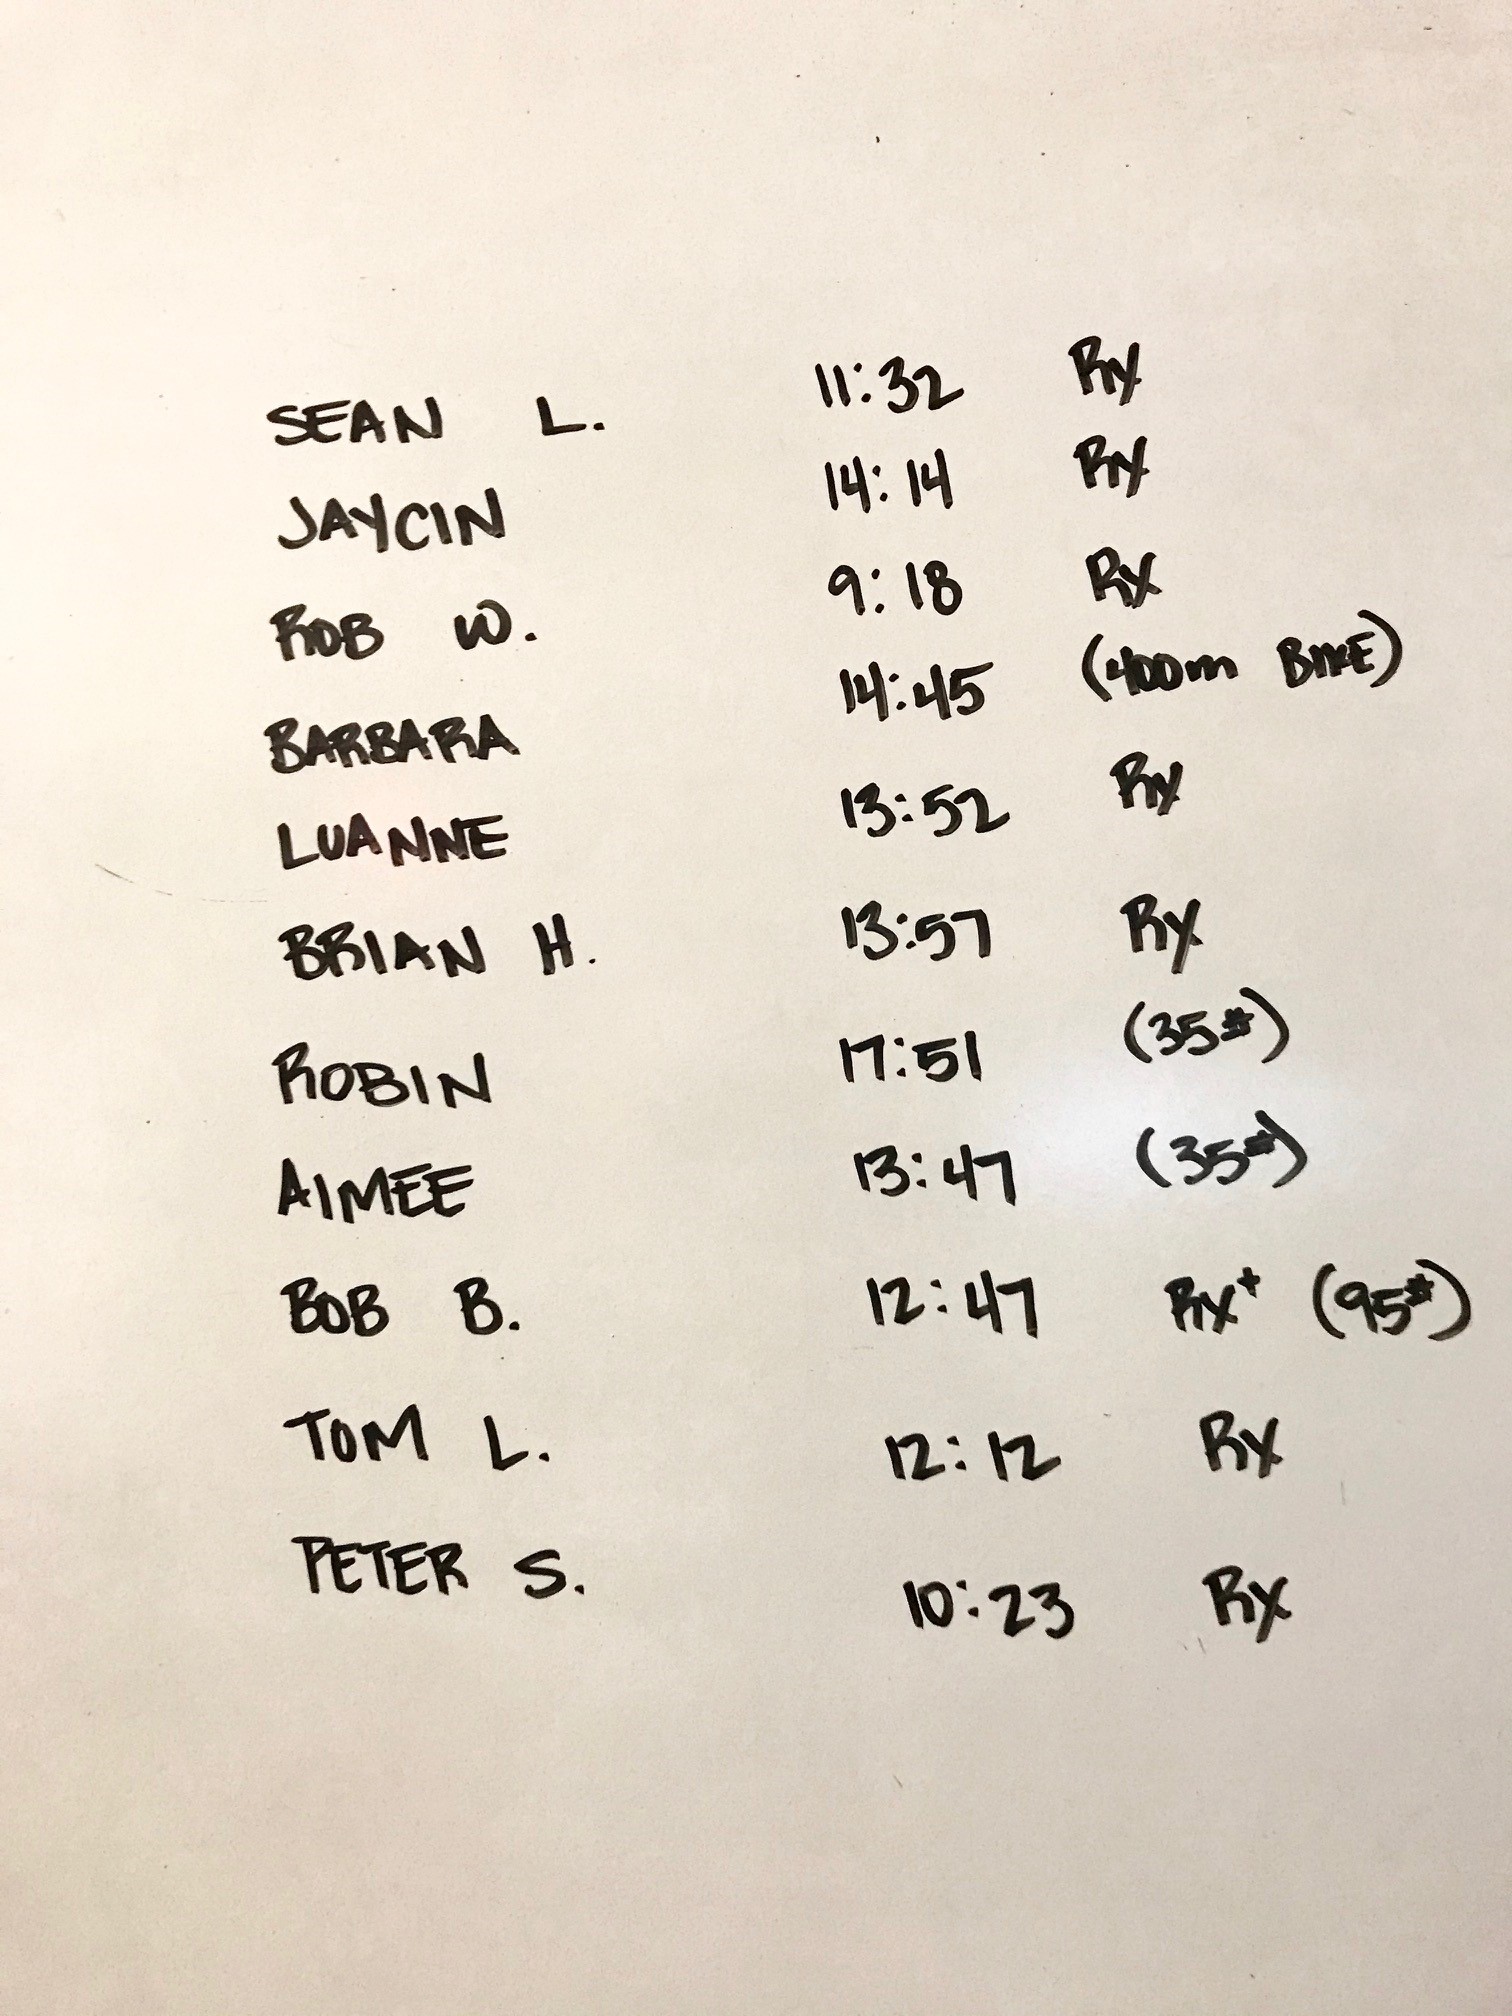 SEAN L. 11:32 Rx
JAYCIN 14:14 Rx
ROB W. 9:18 Rx
BARBARA 14:45 (400m BIKE)
LUANNE 13:52 Rx
BRIAN H. 13:57 Rx
ROBIN 17:51 (35#)
AIMEE 13:47 (35#)
BOB B. 12:47 Rx+ (95#)
TOM L. 12:12 Rx
PETER S. 10:23 Rx